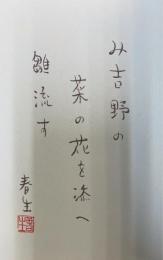 み吉野の
菜の花を添へ
雛流す
春生